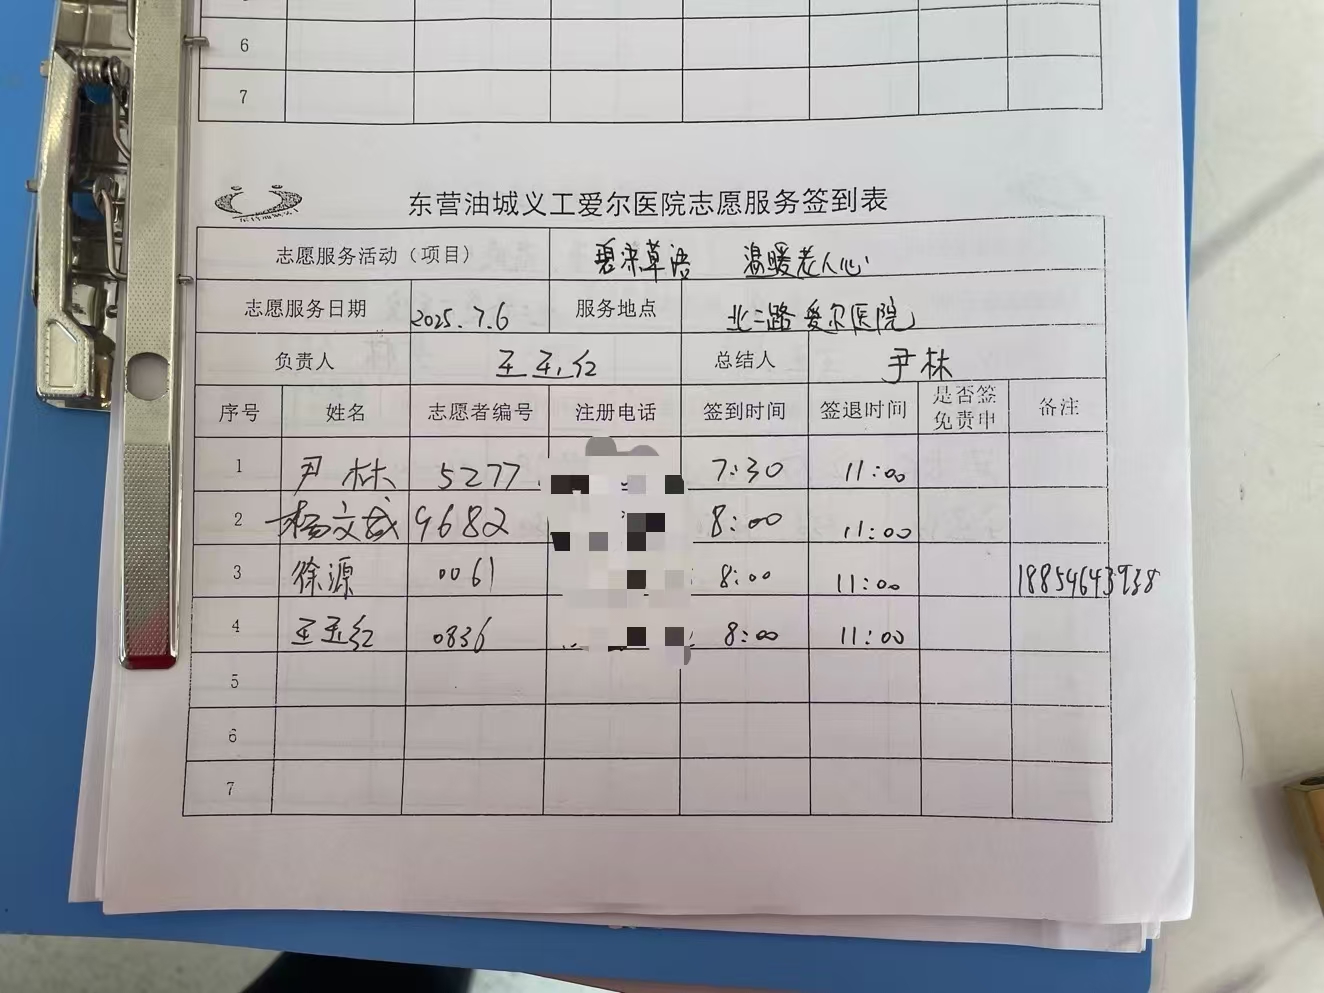 6
7
东营油城义工爱尔医院志愿服务签到表
志愿服务活动（项目） 碧来草语 温暖老人心
志愿服务日期 2025.7.6 服务地点 北二路爱尔医院
负责人 王玉红 总结人 尹林
序号 姓名 志愿者编号 注册电话 签到时间 签退时间 是否签免责申 备注
1 尹林 5277 7:30 11:00
2 杨文成 9682 8:00 11:00
3 徐源 0061 8:00 11:00 18854643938
4 王玉红 0836 8:00 11:00
5
6
7